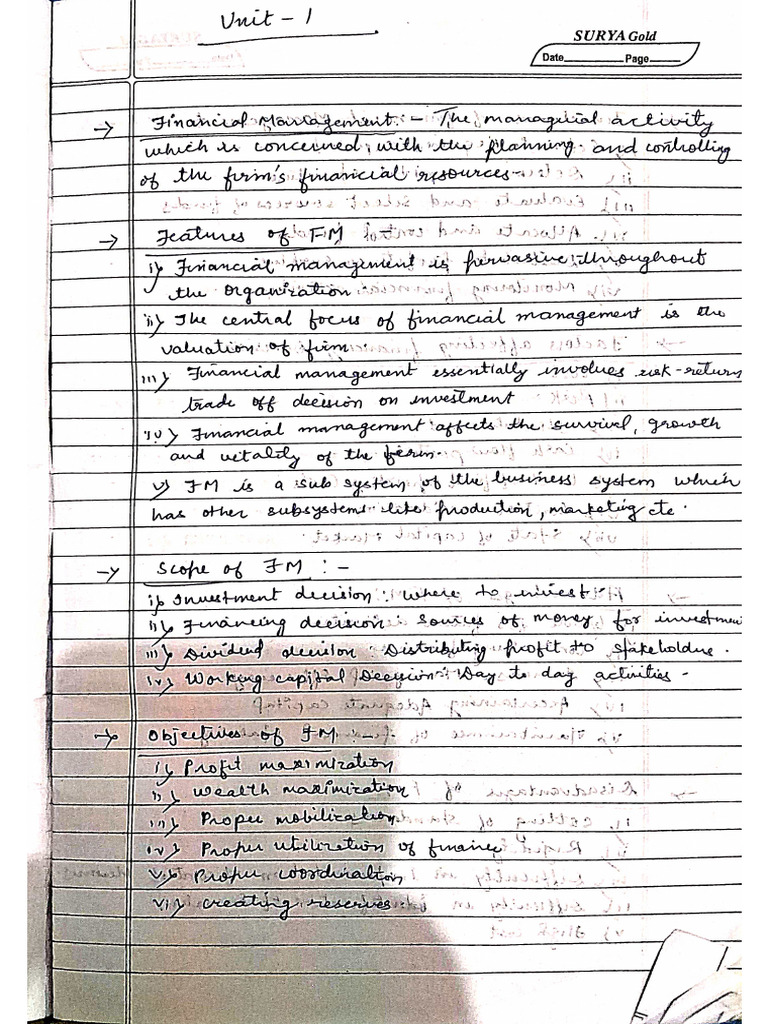 Unit - 1
SURYA Gold
Date Page
→ Financial Management :- The managerial activity
which is concerned, with the planning and controlling
of the firm's financial resources-
→ Features of FM
i) Financial management is pervasive throughout
the organization
ii) The central focus of financial management is the
valuation of firm.
iii) Financial management essentially involves risk-return
trade off decision on investment
iv) Financial management affects the survival, growth
and vitality of the firm.
v) FM is a sub system of the business system which
has other subsystems like production, marketing etc.
→ Scope of FM :-
i) Investment decision : where to invest
ii) Financing decision : Sources of money for investment
iii) Dividend decision : Distributing profit to stakeholder.
iv) Working capital Decision : Day to day activities -
→ Objectives of FM :-
i) Profit maximization
ii) Wealth maximization
iii) Proper mobilization
iv) Proper utilization of finance
v) Proper coordination
vi) creating reserves